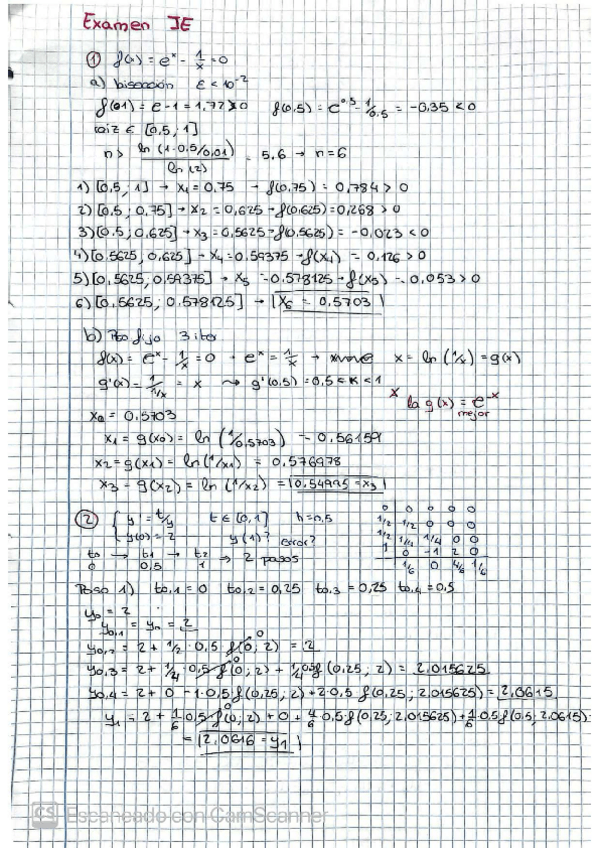 Examen JE
① f(x) = e^x - 1/x = 0
a) bisección ε < 10^-2
f(0,1) = e - 1 = 1,72 > 0 f(0,5) = e^0,5 - 1/0,5 = -0,35 < 0
raiz ∈ [0,5 ; 1]
n > ln(1-0,5/0,01) / ln(2) = 5,6 → n=6
1) [0,5 ; 1] → x1 = 0,75 → f(0,75) = 0,784 > 0
2) [0,5 ; 0,75] → x2 = 0,625 → f(0,625) = 0,268 > 0
3) [0,5 ; 0,625] → x3 = 0,5625 → f(0,5625) = -0,023 < 0
4) [0,5625 ; 0,625] → x4 = 0,59375 → f(x4) = 0,126 > 0
5) [0,5625 ; 0,59375] → x5 = 0,578125 → f(x5) = 0,053 > 0
6) [0,5625 ; 0,578125] → x6 = 0,5703
b) Pto fijo 3 iter
f(x) = e^x - 1/x = 0 → e^x = 1/x → x = ln(1/x) = g(x)
g'(x) = 1/(1/x) = x → g'(0,5) = 0,5 < 1
* la g(x) = e^-x
mejor
x0 = 0,5703
x1 = g(x0) = ln(1/0,5703) = 0,56159
x2 = g(x1) = ln(1/x1) = 0,576978
x3 = g(x2) = ln(1/x2) = 0,54995 = x3
② { y' = t/y t ∈ [0,1] h=0,5
y(0) = 2 y(1)? error?
t0 → t1 → t2 → 2 pasos
0 0,5 1
0 0 0 0 0
1/2 1/2 0 0 0
1/2 1/4 1/4 0 0
1 0 -1 2 0
1/6 0 4/6 1/6
Paso 1) t0,1 = 0 t0,2 = 0,25 t0,3 = 0,25 t0,4 = 0,5
y0 = 2
y0,1 = yn = 2
y0,2 = 2 + 1/2 · 0,5 f(0 ; 2) = 2
y0,3 = 2 + 1/4 · 0,5 f(0 ; 2) + 1/4 0,5 f(0,25 ; 2) = 2,015625
y0,4 = 2 + 0 - 1·0,5 f(0,25 ; 2) + 2·0,5 f(0,25 ; 2,015625) = 2,0615
y1 = 2 + 1/6 0,5 f(0 ; 2) + 0 + 4/6 · 0,5 f(0,25 ; 2,015625) + 1/6 · 0,5 f(0,5 ; 2,0615) =
= 2,0616 = y1
CS Escaneado con CamScanner